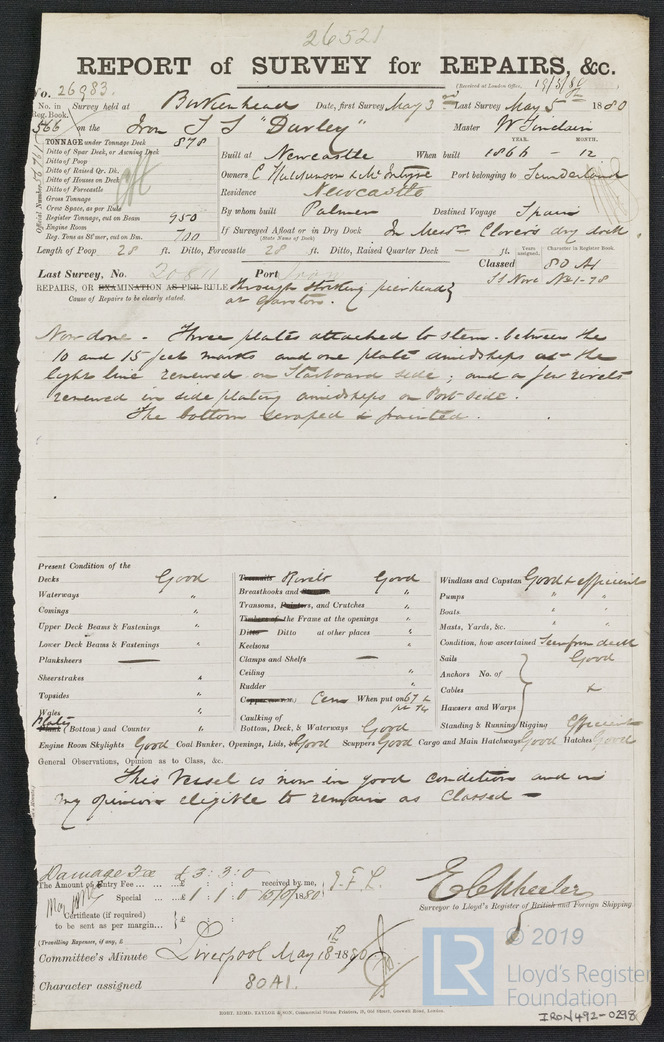 26521
REPORT of SURVEY for REPAIRS, &c.
No. 26983.
(Received at London Office, 19/5/80
No. in Survey held at Birkenhead Date, first Survey May 3rd Last Survey May 5th 1880
Reg. Book.
566 on the Iron S S "Darley" Master W Sinclair
TONNAGE under Tonnage Deck 878
Ditto of Spar Deck, or Awning Deck
Ditto of Poop
Ditto of Raised Qr. Dk.
Ditto of Houses on Deck
Ditto of Forecastle
Gross Tonnage
Crew Space, as per Rule
Register Tonnage, cut on Beam 950
Engine Room
Reg. Tons as St'mer, cut on Bm. 700
Official Number
YEAR. MONTH.
Built at Newcastle When built 1866 - 12
Owners C Hutchinson & Mc Intyre Port belonging to Sunderland
Residence Newcastle
By whom built Palmer Destined Voyage Spain
If Surveyed Afloat or in Dry Dock In Messrs Clover's dry dock
(State Name of Dock)
Length of Poop 28 ft. Ditto, Forecastle 28 ft. Ditto, Raised Quarter Deck — ft.
Years assigned. Character in Register Book.
Classed 80 A1
Last Survey, No. 20811 Port Iron
REPAIRS, OR EXAMINATION AS PER RULE through striking pierhead
Cause of Repairs to be clearly stated. at Garston.
Now done - Three plates attached to stem between the
10 and 15 feet marks and one plate amidships at the
light line renewed on Starboard side; and a few rivets
renewed in side plating amidships on Port side.
The bottom scraped & painted.
Present Condition of the
Decks Good
Waterways "
Comings "
Upper Deck Beams & Fastenings "
Lower Deck Beams & Fastenings "
Planksheers —
Sheerstrakes "
Topsides "
Wales "
Plates
Plank (Bottom) and Counter "
Treenails Rivets Good
Breasthooks and
Transoms, Pointers, and Crutches "
Timbers of the Frame at the openings "
Ditto Ditto at other places "
Keelsons "
Clamps and Shelfs —
Ceiling "
Rudder "
Copper Cem When put on 67 &
pt 74
Caulking of
Bottom, Deck, & Waterways Good
Windlass and Capstan Good & efficient
Pumps " "
Boats " "
Masts, Yards, &c. " "
Condition, how ascertained Seen from deck
Sails Good
Anchors No. of
Cables &
Hawsers and Warps
Standing & Running Rigging Efficient
Engine Room Skylights Good Coal Bunker, Openings, Lids, &c Good Scuppers Good Cargo and Main Hatchways Good Hatches Good
General Observations, Opinion as to Class, &c.
This Vessel is now in good condition and in
my opinion eligible to remain as Classed -
Damage Fee £3 : 3 : 0
The Amount of Entry Fee ... ... ...£ : : received by me,
Special ... ...£ 1 : 1 : 0 1880
Certificate (if required)
to be sent as per margin... £ : :
(Travelling Expenses, if any, £
E C Wheeler
Surveyor to Lloyd's Register of British and Foreign Shipping
Committee's Minute Liverpool May 18th 1880
Character assigned 80A1.
ROBT. EDMD. TAYLOR & SON, Commercial Steam Printers, 19, Old Street, Goswell Road, London.
LR © 2019
Lloyd's Register
Foundation
IRON492-0298